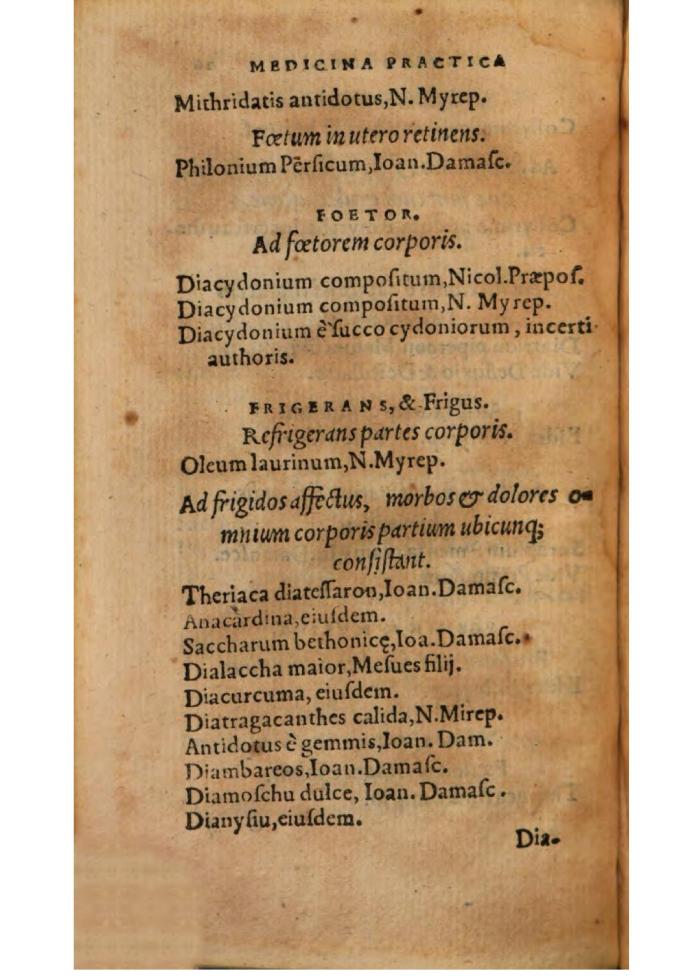 MEDICINA PRACTICA
Mithridatis antidotus,N. Myrep.
Fœtum in utero retinens.
Philonium Pērſicum,Ioan.Damaſc.
FOETOR.
Ad fœtorem corporis.
Diacydonium compoſitum,Nicol.Præpoſ.
Diacydonium compoſitum,N. Myrep.
Diacydonium è ſucco cydoniorum , incerti
authoris.
FRIGERANS, & Frigus.
Refrigerans partes corporis.
Oleum laurinum,N.Myrep.
Ad frigidos affectus, morbos & dolores o-
mnium corporis partium ubicunq;
conſiſtant.
Theriaca diateſſaron,Ioan.Damaſc.
Anacardina,eiuſdem.
Saccharum bethonicę,Ioa.Damaſc.
Dialaccha maior,Meſues filij.
Diacurcuma, eiuſdem.
Diatragacanthes calida,N.Mirep.
Antidotus è gemmis,Ioan. Dam.
Diambareos,Ioan.Damaſc.
Diamoſchu dulce, Ioan. Damaſc .
Dianyſiu,eiuſdem.
Dia-